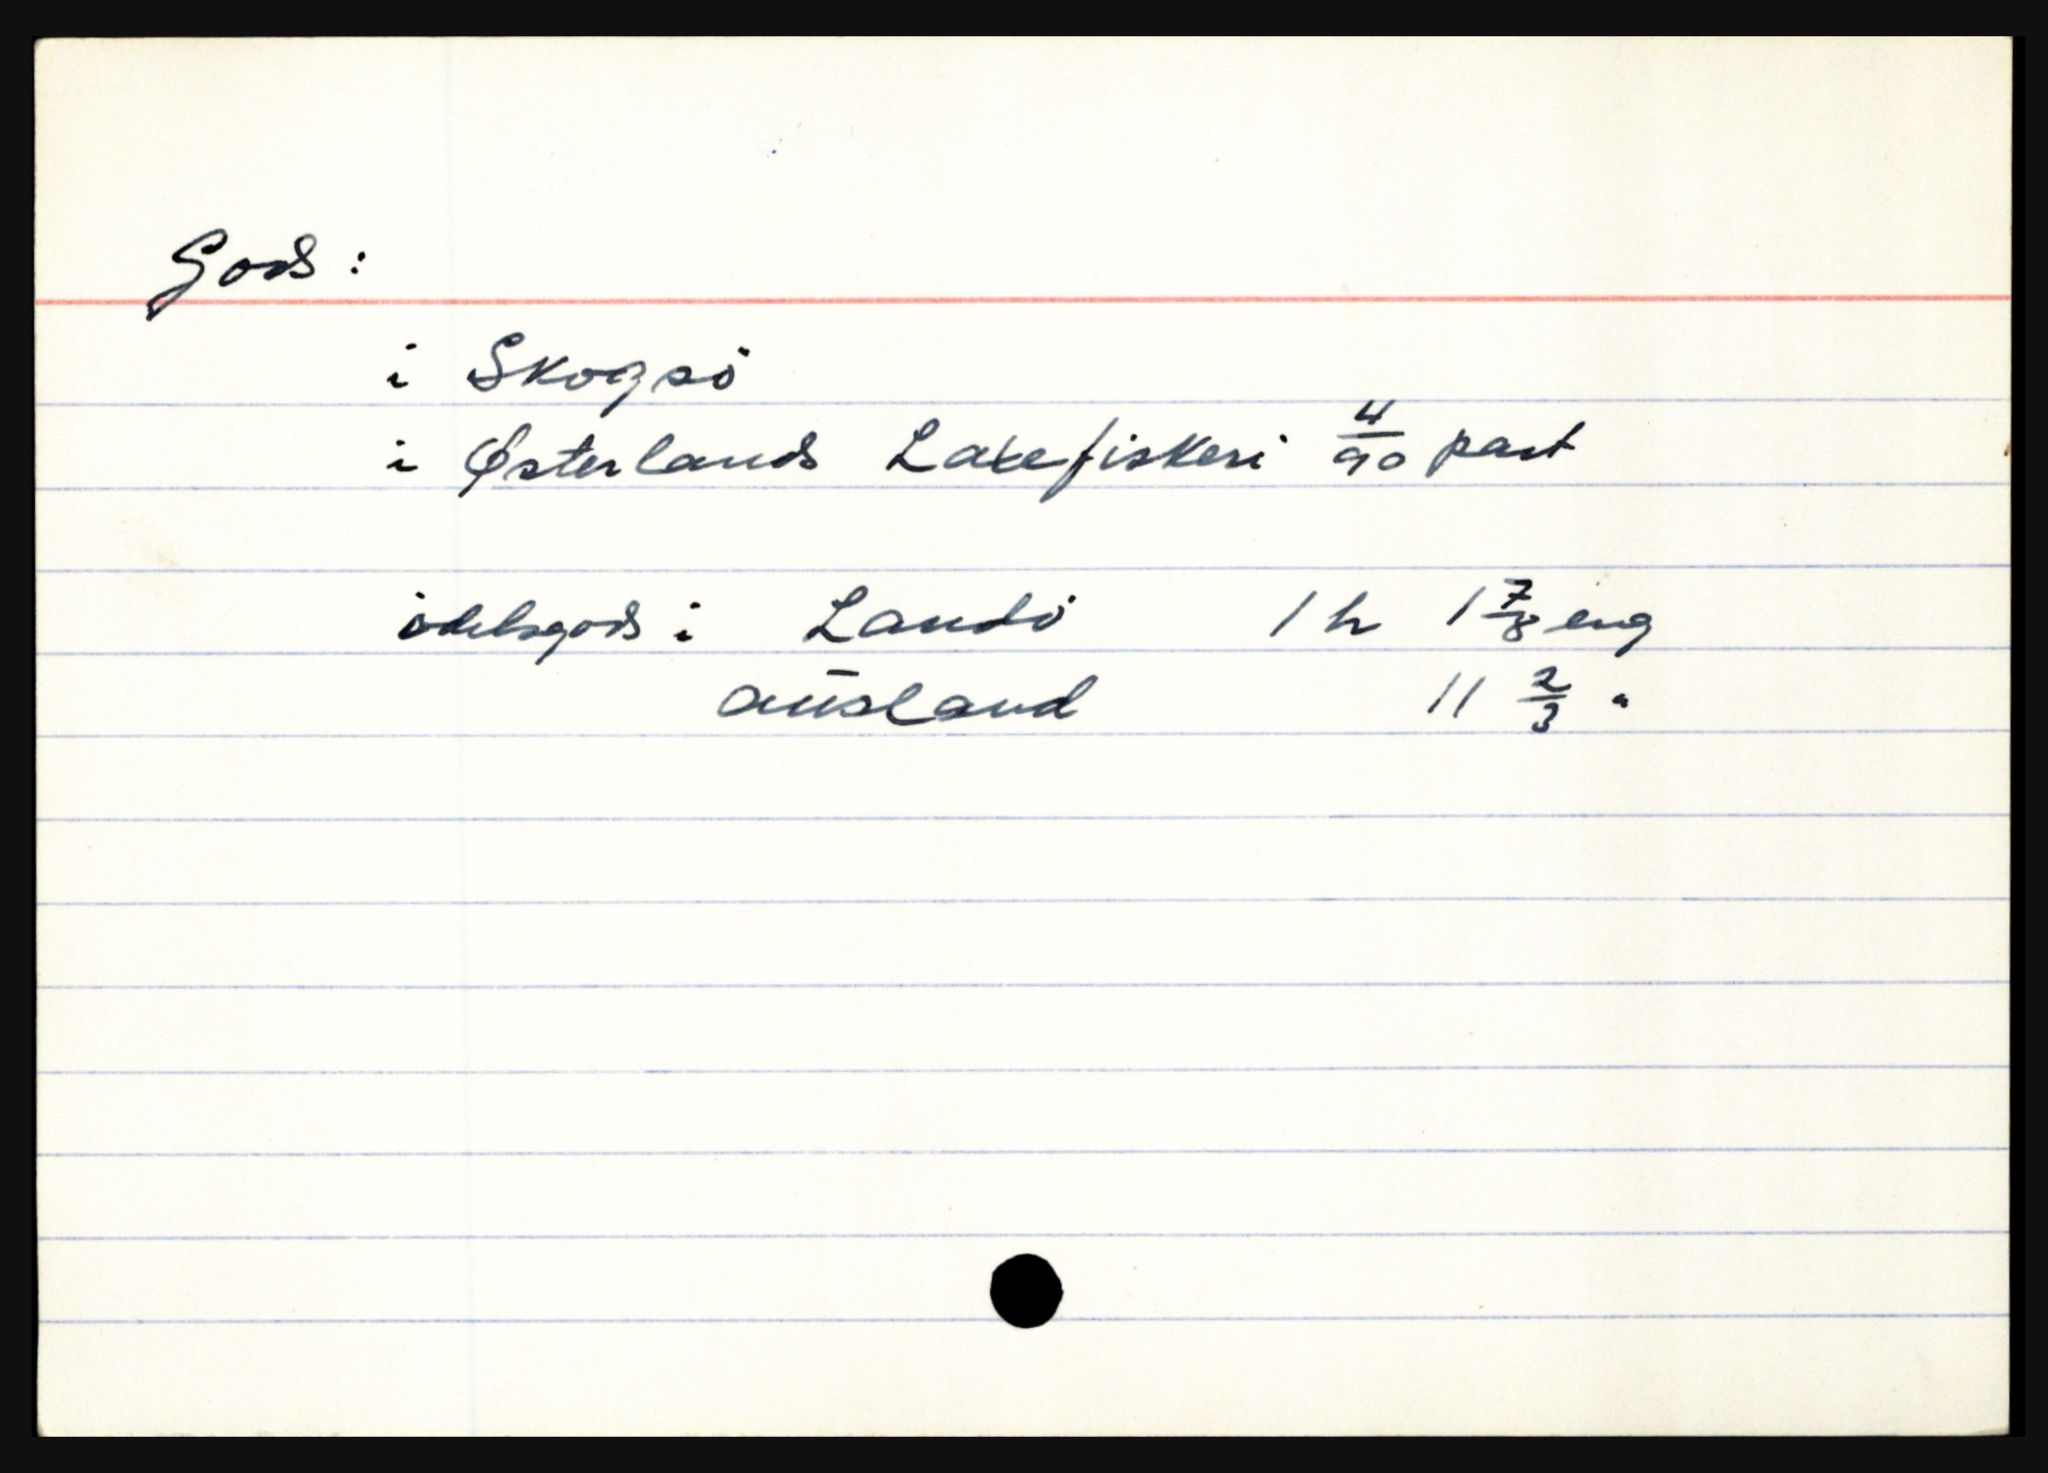 Gods:
i Skogsö
i Østerlands Laxefiskeri 4/90 part
odelsgods i Landö 1 h 1 7/8 eng
Ausland 11 2/3 "